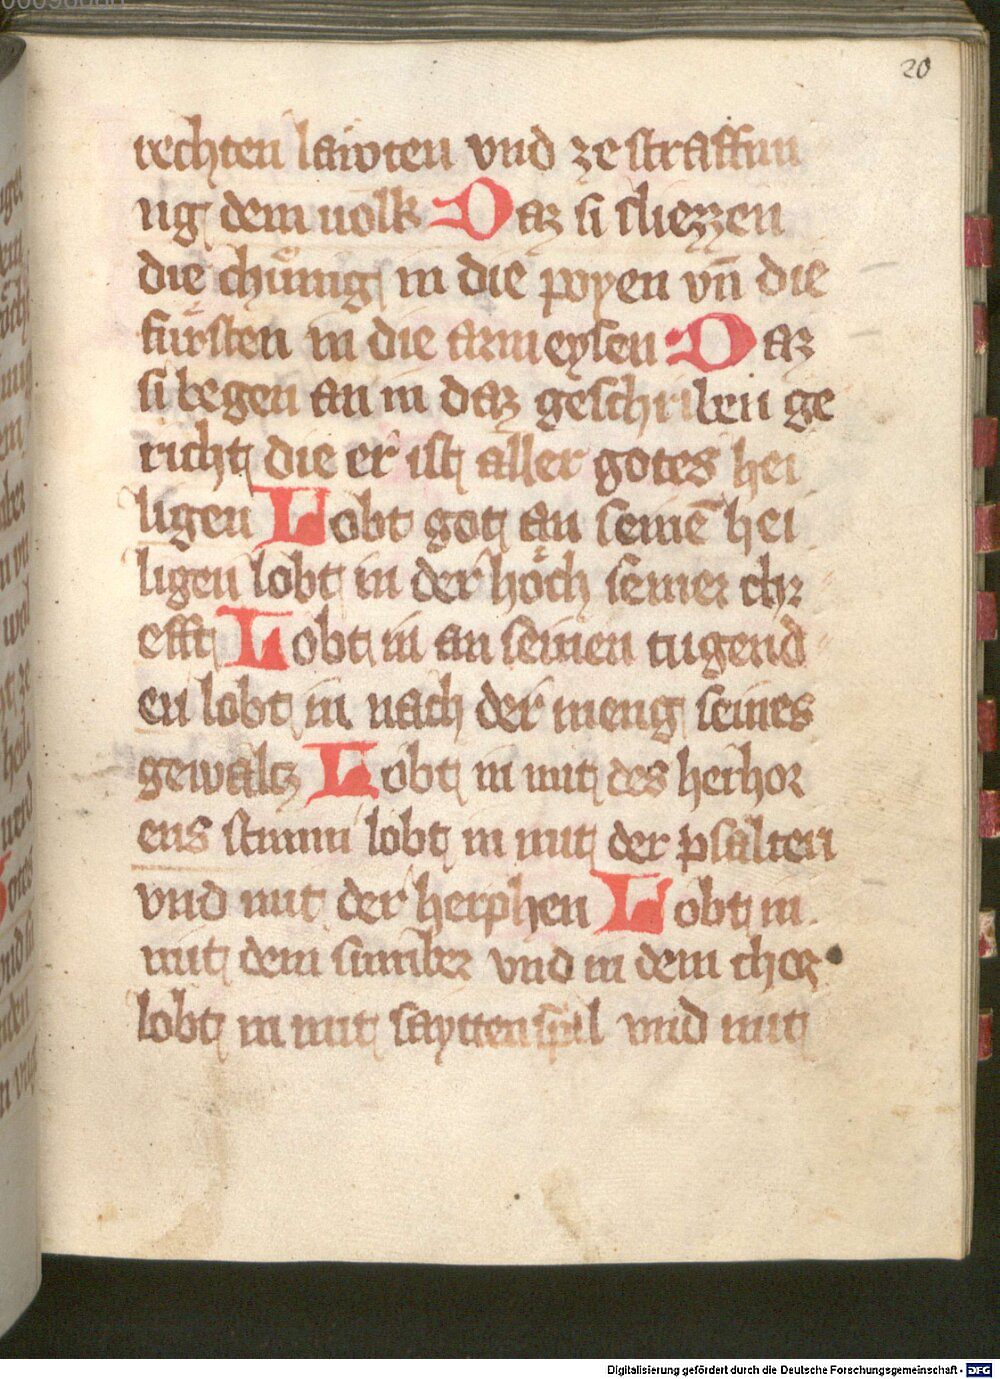 20
rechten lawten vnd ze straffun
ng dem uolk Daz si sliezzen
die chuͤnig in die poyen vn̄ die
fuͤrsten in die armeysen Daz
si begen an in daz geschriben ge
richt die er ist aller gotes hei
ligen Lobt got an seinē hei
ligen lobt in der hoͤch seiner chr
efft Lobt in an seinen tugend
en lobt in nach der meng seines
gewaltz Lobt in mit des herhor
ens stimm lobt in mit der psalteri
vnd mit der herphen Lobt in
mit dem sumber vnd in dem chor
lobt in mit sayttenspil vnd mit
Digitalisierung gefördert durch die Deutsche Forschungsgemeinschaft - DFG